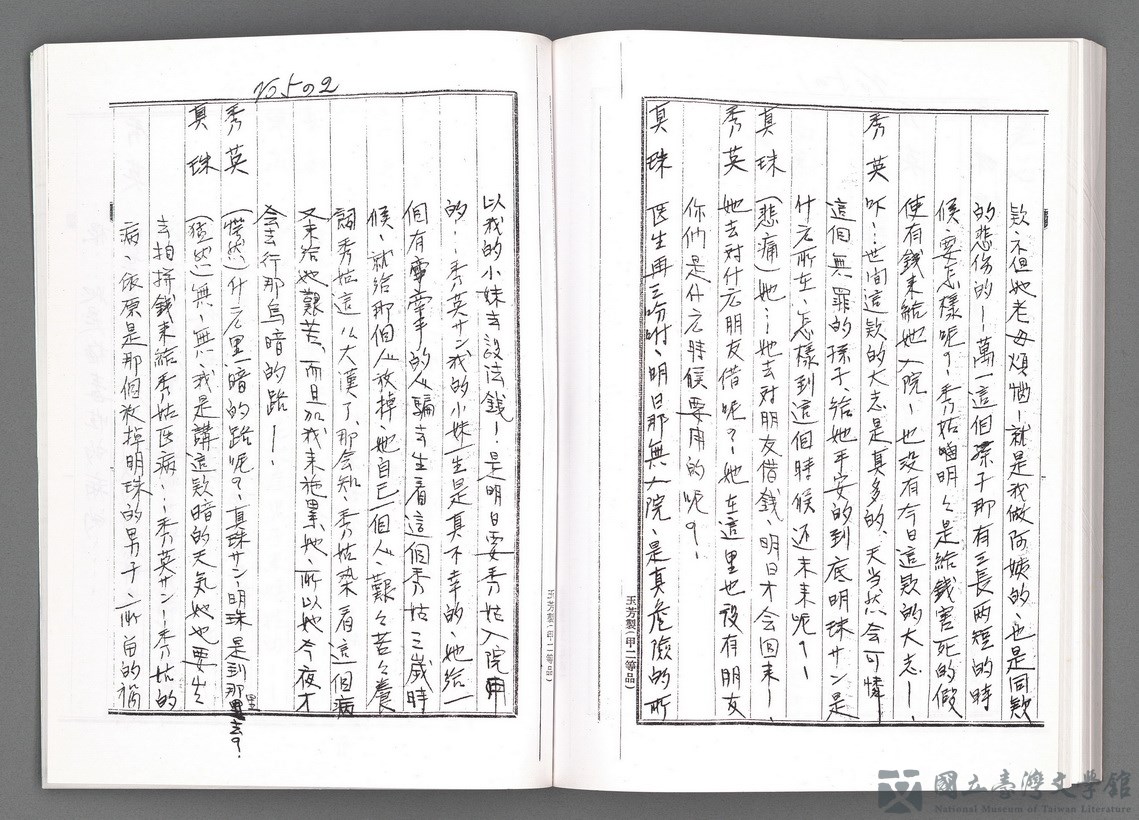 欵、不但她老母煩惱ー就是我做阿姨的、也是同欵
的悲傷的ー萬一這個孫子那有三長両短的時
候、要怎樣呢?秀姑喃明々是給錢害死的假
使有錢来給她入院ー也没有今日這欵的大志ー、
秀英 吓…世间這欵的大志是真多的、天当然会可憐
這個無罪的孫子、給她平安的到底明珠サン是
什么所在、怎樣到這個時候还未来呢?ー
真珠 (悲痛)她…她去对朋友借錢、明日才会回来ー、
秀英 她去对什么朋友借呢?ー她在這里也設有朋友
你們是什么時候要用的呢?ー、
真珠 医生再三吩咐、明日那無入院、是真危險的所
玉芳製(甲二等品)
75502
以我的小妹去設法錢ー、是明日要秀姑入院用
的…秀英サン我的小妹一生是真不幸的、她給一
個有電車的人騙去生着這個秀姑三歲時
候、就給那個人放掉、她自己一個人、艱々苦々養
飼秀姑這么大漢了、那会知秀姑染着這個病
又来給她艱苦、而且加我来拖累她、所以她今夜才
会去行那烏暗的路ー、
秀英 (愕然)什么黑暗的路呢?、真珠サン、明珠是到那里去?
真珠 (猛然)無、無、我是講這欵暗的天氣她也要出
去拍拼錢来給秀姑医病…秀英サンー秀姑的
病、依原是那個放掉明珠的男子、所留的禍
玉芳製(甲二等品)
國立臺灣文學館
National Museum of Taiwan Literature